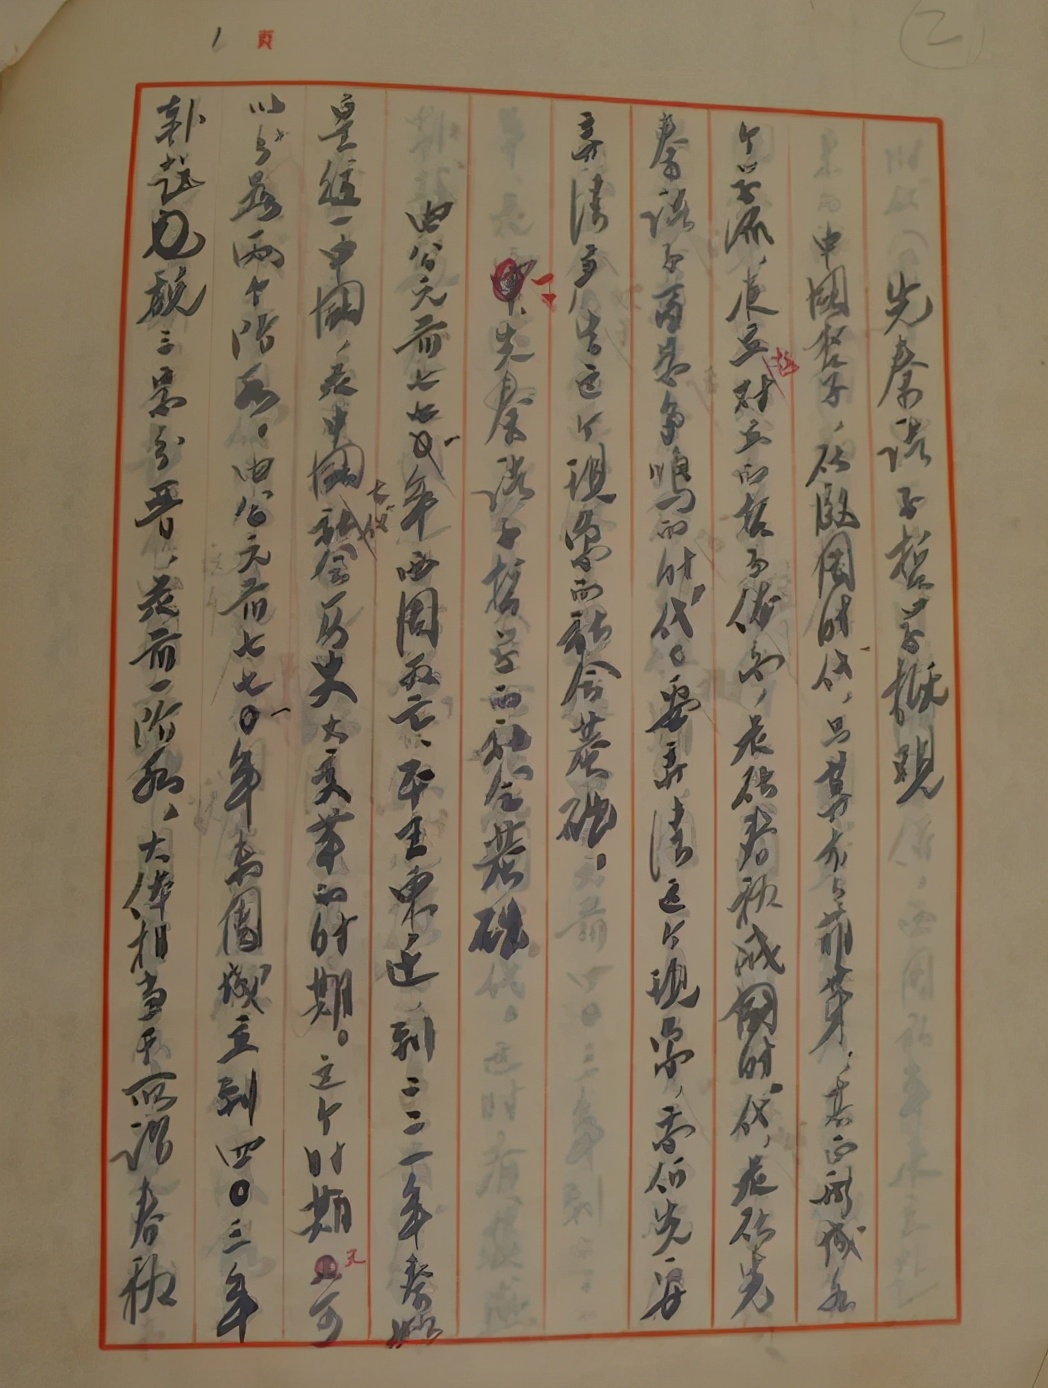 1 页
乙
先秦诸子哲学概观
中國哲学，在殷周时代，只算有了萌芽；真正形成各
个学派，建立对立的哲学体系，是在春秋战國时代，是在先
秦诸子百家争鸣的时代。要弄清这个现象，需要先要
弄清产生这个现象的社会基础。
一、先秦诸子哲学的社会基础
由公元前七七〇年西周灭亡、平王东迁，到二二一年秦始
皇统一中國，是中國古代社会历史大变革的时期。这个时期又可
以分为两个阶段。由公元前七七〇年东周成立到四〇三年
韩赵魏三家分晋，是前一阶段，大体相当于所谓春秋